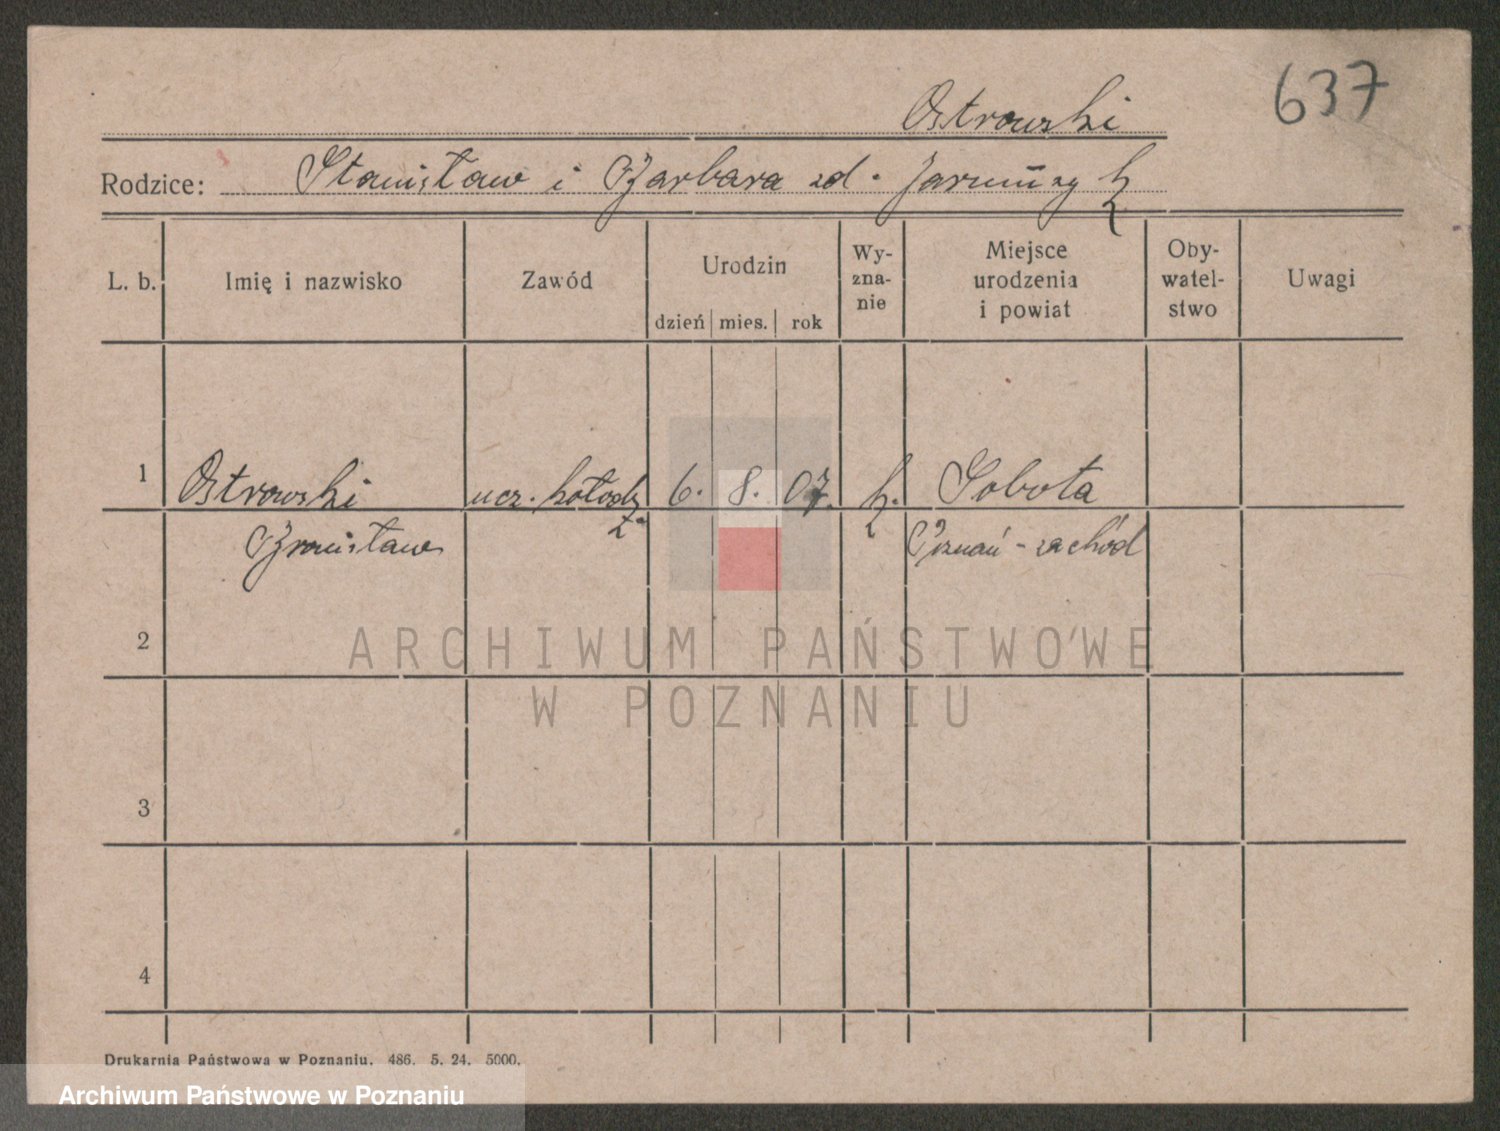 637
Ostrowski
Rodzice: Stanisław i Barbara zd.
L. b. Imię i nazwisko Zawód Urodzin dzień mies. rok Wy-zna-nie Miejsce urodzenia i powiat Oby-watel-stwo Uwagi
1 Ostrowski ucz. kołodz. 6. 8. 07. k. Sobota
Bronisław Poznań - zachód
2
ARCHIWUM PAŃSTWOWE
W POZNANIU
3
4
Drukarnia Państwowa w Poznaniu. 486. 5. 24. 5000.
Archiwum Państwowe w Poznaniu